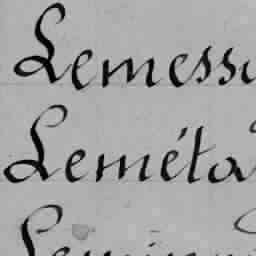 Lemess
Leméta